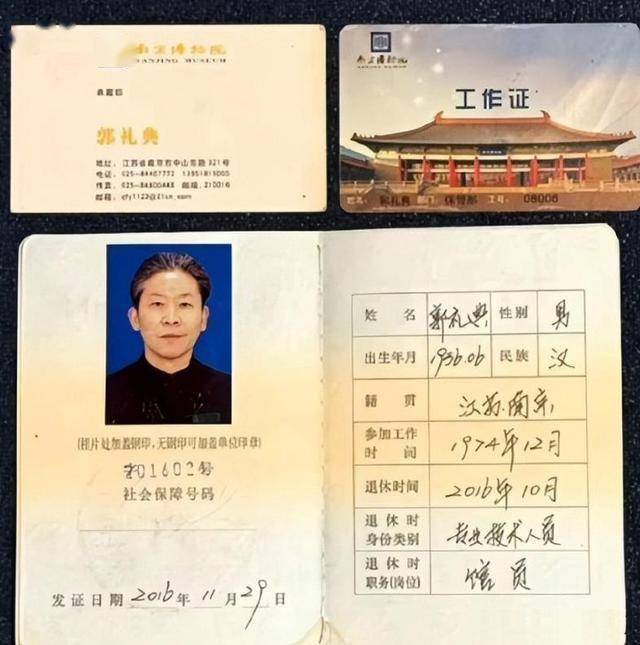 南京博物院
NANJING MUSEUM
郭礼典
地址：江苏省南京市中山东路321号
电话：
传真： 邮编：210016
邮箱：
南京博物院
NANJING MUSEUM
工作证
姓名：郭礼典 部门：保管部 工号：08006
(相片处加盖钢印,无钢印可加盖单位印章)
01602号
社会保障号码
发证日期 2016年 11月 29日
姓名 郭礼典 性别 男
出生年月 1956.06 民族 汉
籍贯 江苏南京
参加工作时间 1974年12月
退休时间 2016年10月
退休时身份类别 专业技术人员
退休时职务(岗位) 馆员